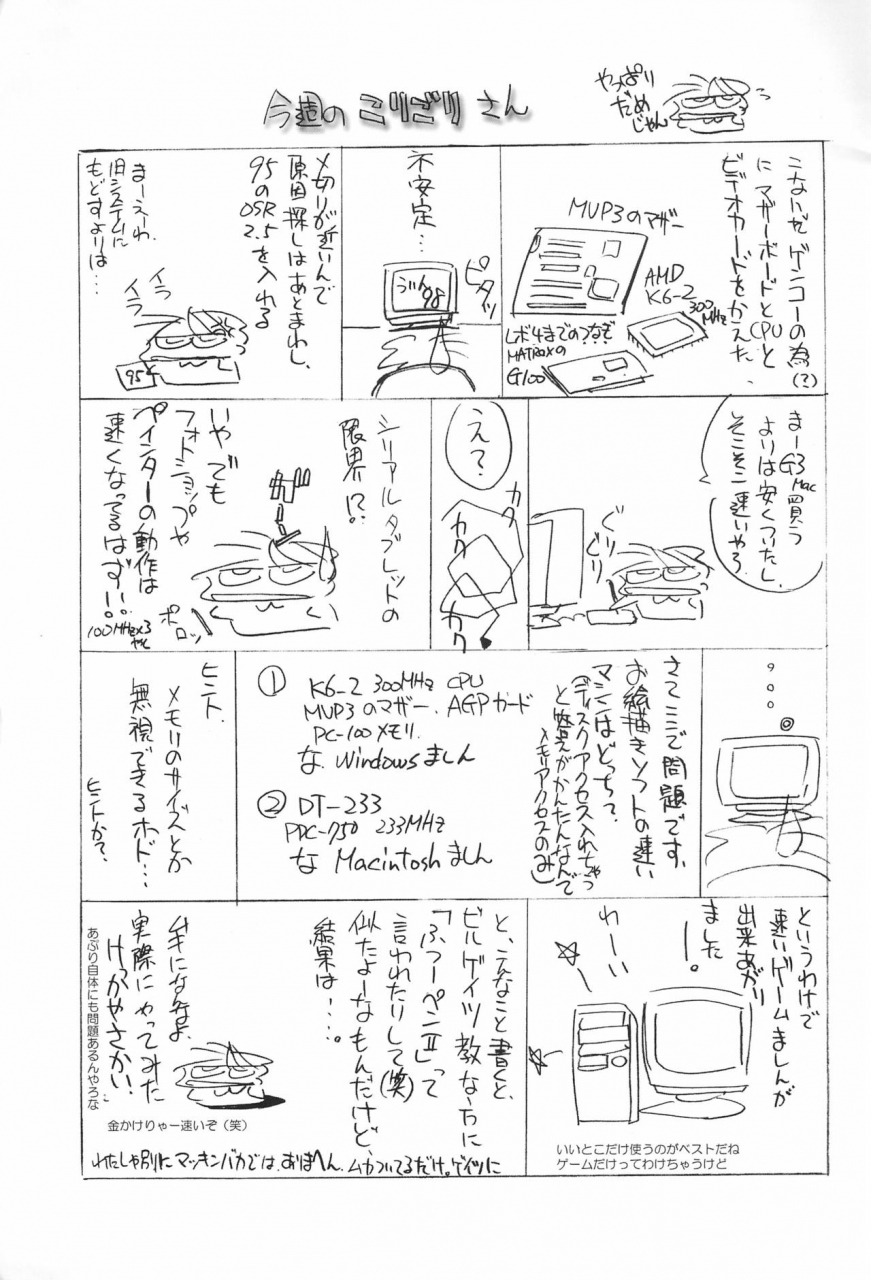 今週のこりごりさん
やっぱり
だめ
じゃん
こないだゲンコーの為(?)
にマザーボードとCPUと
ビデオカードをかえた。
MVP3のマザー
AMD
K6-2
300
MHz
レボ4までのつなぎ
MATROXの
G100
不安定…
ピタッ
うぃん
98
〆切りが近いんで
原因探しはあとまわし、
95の
OSR
2.5を入れる
まーえーわ、
旧システムに
もどすよりは…
イラ
イラ
95
まーG3Mac買う
よりは安くついたし、
そこそこ速いやろ
ぐり
ぐり
え?
カク
カク
カク
シリアルタブレットの
限界!?
ガーン
いやでも
フォトショップや
ペインターの動作は
速くなってるはず!!
100MHz×3
やし
ポロッ
。。。
さてここで問題です、
お絵描きソフトの速い
マシンはどっち?
(ディスクアクセス入れちゃう
と答えがかんたんなんで
メモリアクセスのみ)
① K6-2 300MHz CPU
MVP3のマザー、AGPカード
PC-100メモリ
な Windowsましん
② DT-233
PPC-750 233MHz
な Macintoshましん
ヒント、
メモリのサイズとか
無視できるホド…
ヒントか?
というわけで
速いゲームましんが
出来あがり
ました
ー。
わーい
いいとこだけ使うのがベストだね
ゲームだけってわけちゃうけど
と、こんなこと書くと、
ビルゲイツ教な方に
「ふつーペンⅡ」って
言われたりして(笑)
似たよーなもんだけど、
結果は…。
ムキになんなよ、
実際にやってみた
けっかやさかい!
あぷり自体にも問題あるんやろな
金かけりゃー速いぞ(笑)
わたしゃ別にマッキンバカではありまへん、ムカついてるだけ。ゲイツに